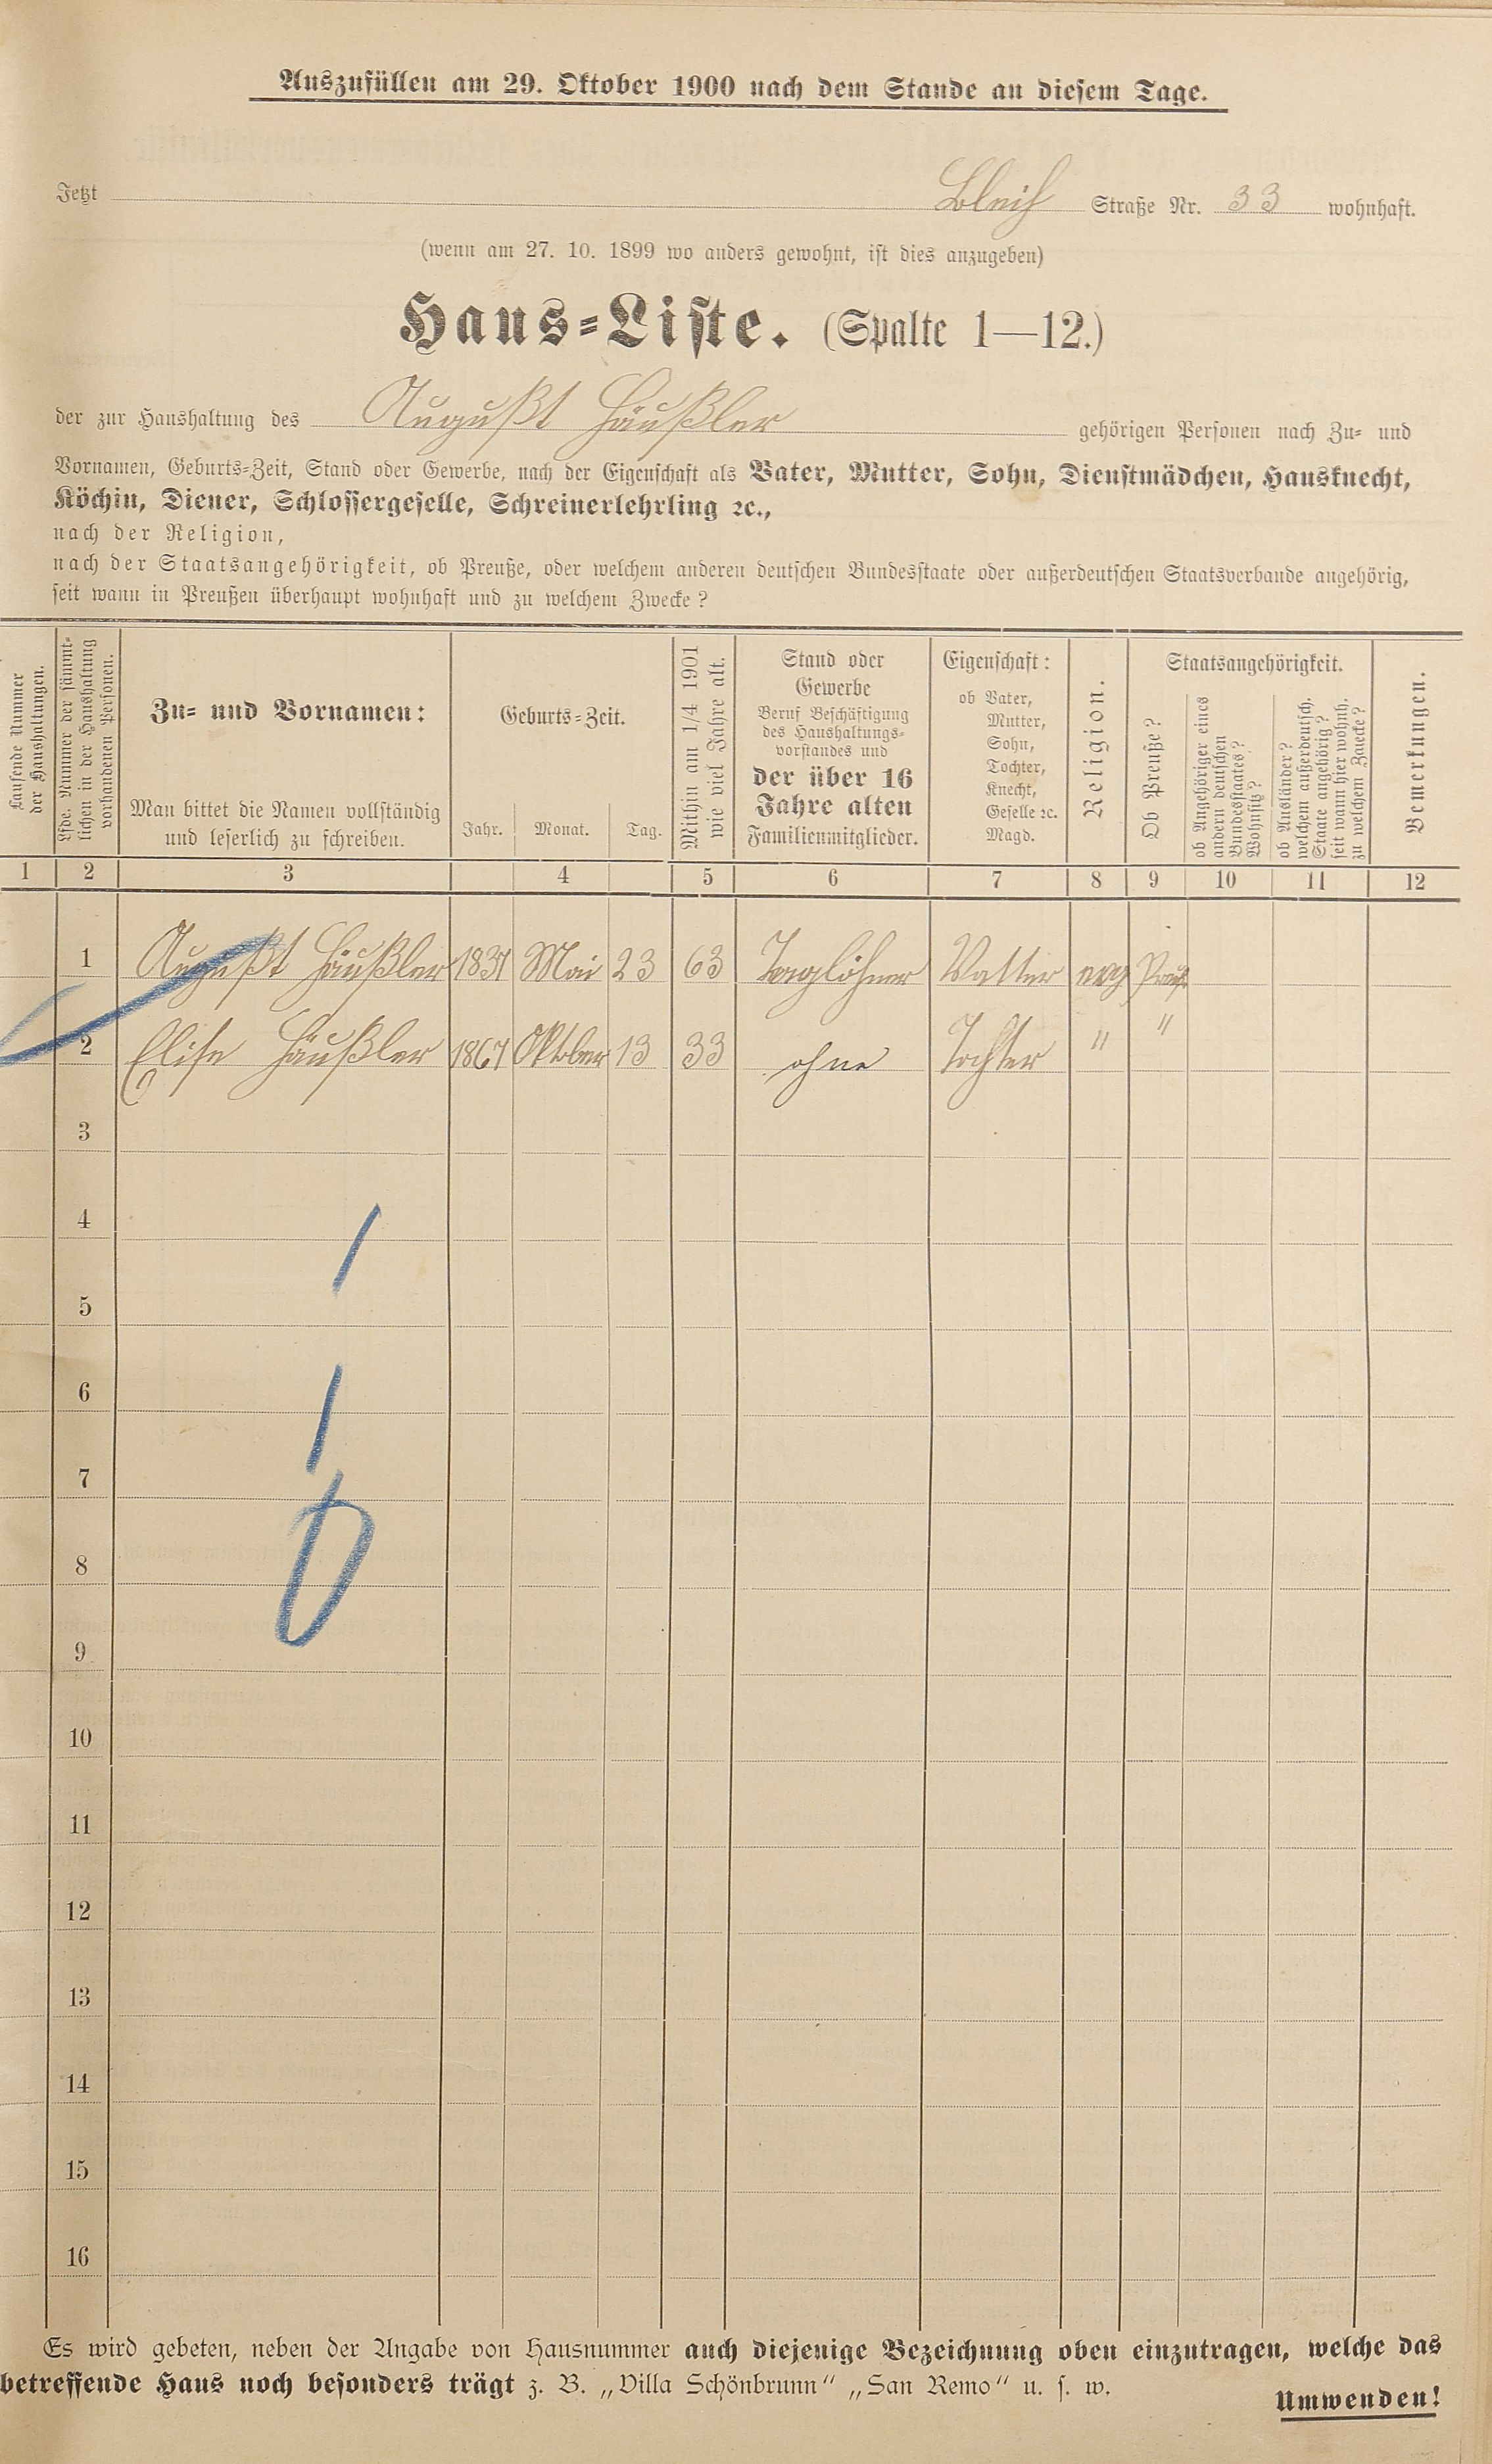 Auszufüllen am 29. Oktober 1900 nach dem Stande an diesem Tage.
Jetzt Bleich Straße Nr. 33 wohnhaft.
(wenn am 27. 10. 1899 wo anders gewohnt, ist dies anzugeben)
Haus-Liste. (Spalte 1—12.)
der zur Haushaltung des August Häußler gehörigen Personen nach Zu- und
Vornamen, Geburts-Zeit, Stand oder Gewerbe, nach der Eigenschaft als Vater, Mutter, Sohn, Dienstmädchen, Hausknecht,
Köchin, Diener, Schlossergeselle, Schreinerlehrling ꝛc.,
nach der Religion,
nach der Staatsangehörigkeit, ob Preuße, oder welchem anderen deutschen Bundesstaate oder außerdeutschen Staatsverbande angehörig,
seit wann in Preußen überhaupt wohnhaft und zu welchem Zwecke?
Laufende Nummer
der Haushaltungen.
Lfde. Nummer der sämmt-
lichen in der Haushaltung
vorhandenen Personen.
Zu- und Vornamen:
Man bittet die Namen vollständig
und leserlich zu schreiben.
Geburts-Zeit.
Jahr. Monat. Tag.
Mithin am 1/4 1901
wie viel Jahre alt.
Stand oder
Gewerbe
Beruf Beschäftigung
des Haushaltungs-
vorstandes und
der über 16
Jahre alten
Familienmitglieder.
Eigenschaft:
ob Vater,
Mutter,
Sohn,
Tochter,
Knecht,
Geselle ꝛc.
Magd.
Religion.
Staatsangehörigkeit.
Ob Preuße?
ob Angehöriger eines
andern deutschen
Bundesstaates?
Wohnsitz?
ob Ausländer?
welchem außerdeutsch.
Staate angehörig?
seit wann hier wohnh.
zu welchem Zwecke?
Bemerkungen.
1 2 3 4 5 6 7 8 9 10 11 12
1 August Häußler 1837 Mai 23 63 Taglöhner Vatter evg Preuß.
2 Elise Häußler 1867 Oktober 13 33 ohne Tochter " "
3
4
5
6
7
8
9
10
11
12
13
14
15
16
Es wird gebeten, neben der Angabe von Hausnummer auch diejenige Bezeichnung oben einzutragen, welche das
betreffende Haus noch besonders trägt z. B. „Villa Schönbrunn“ „San Remo“ u. s. w.
Umwenden!